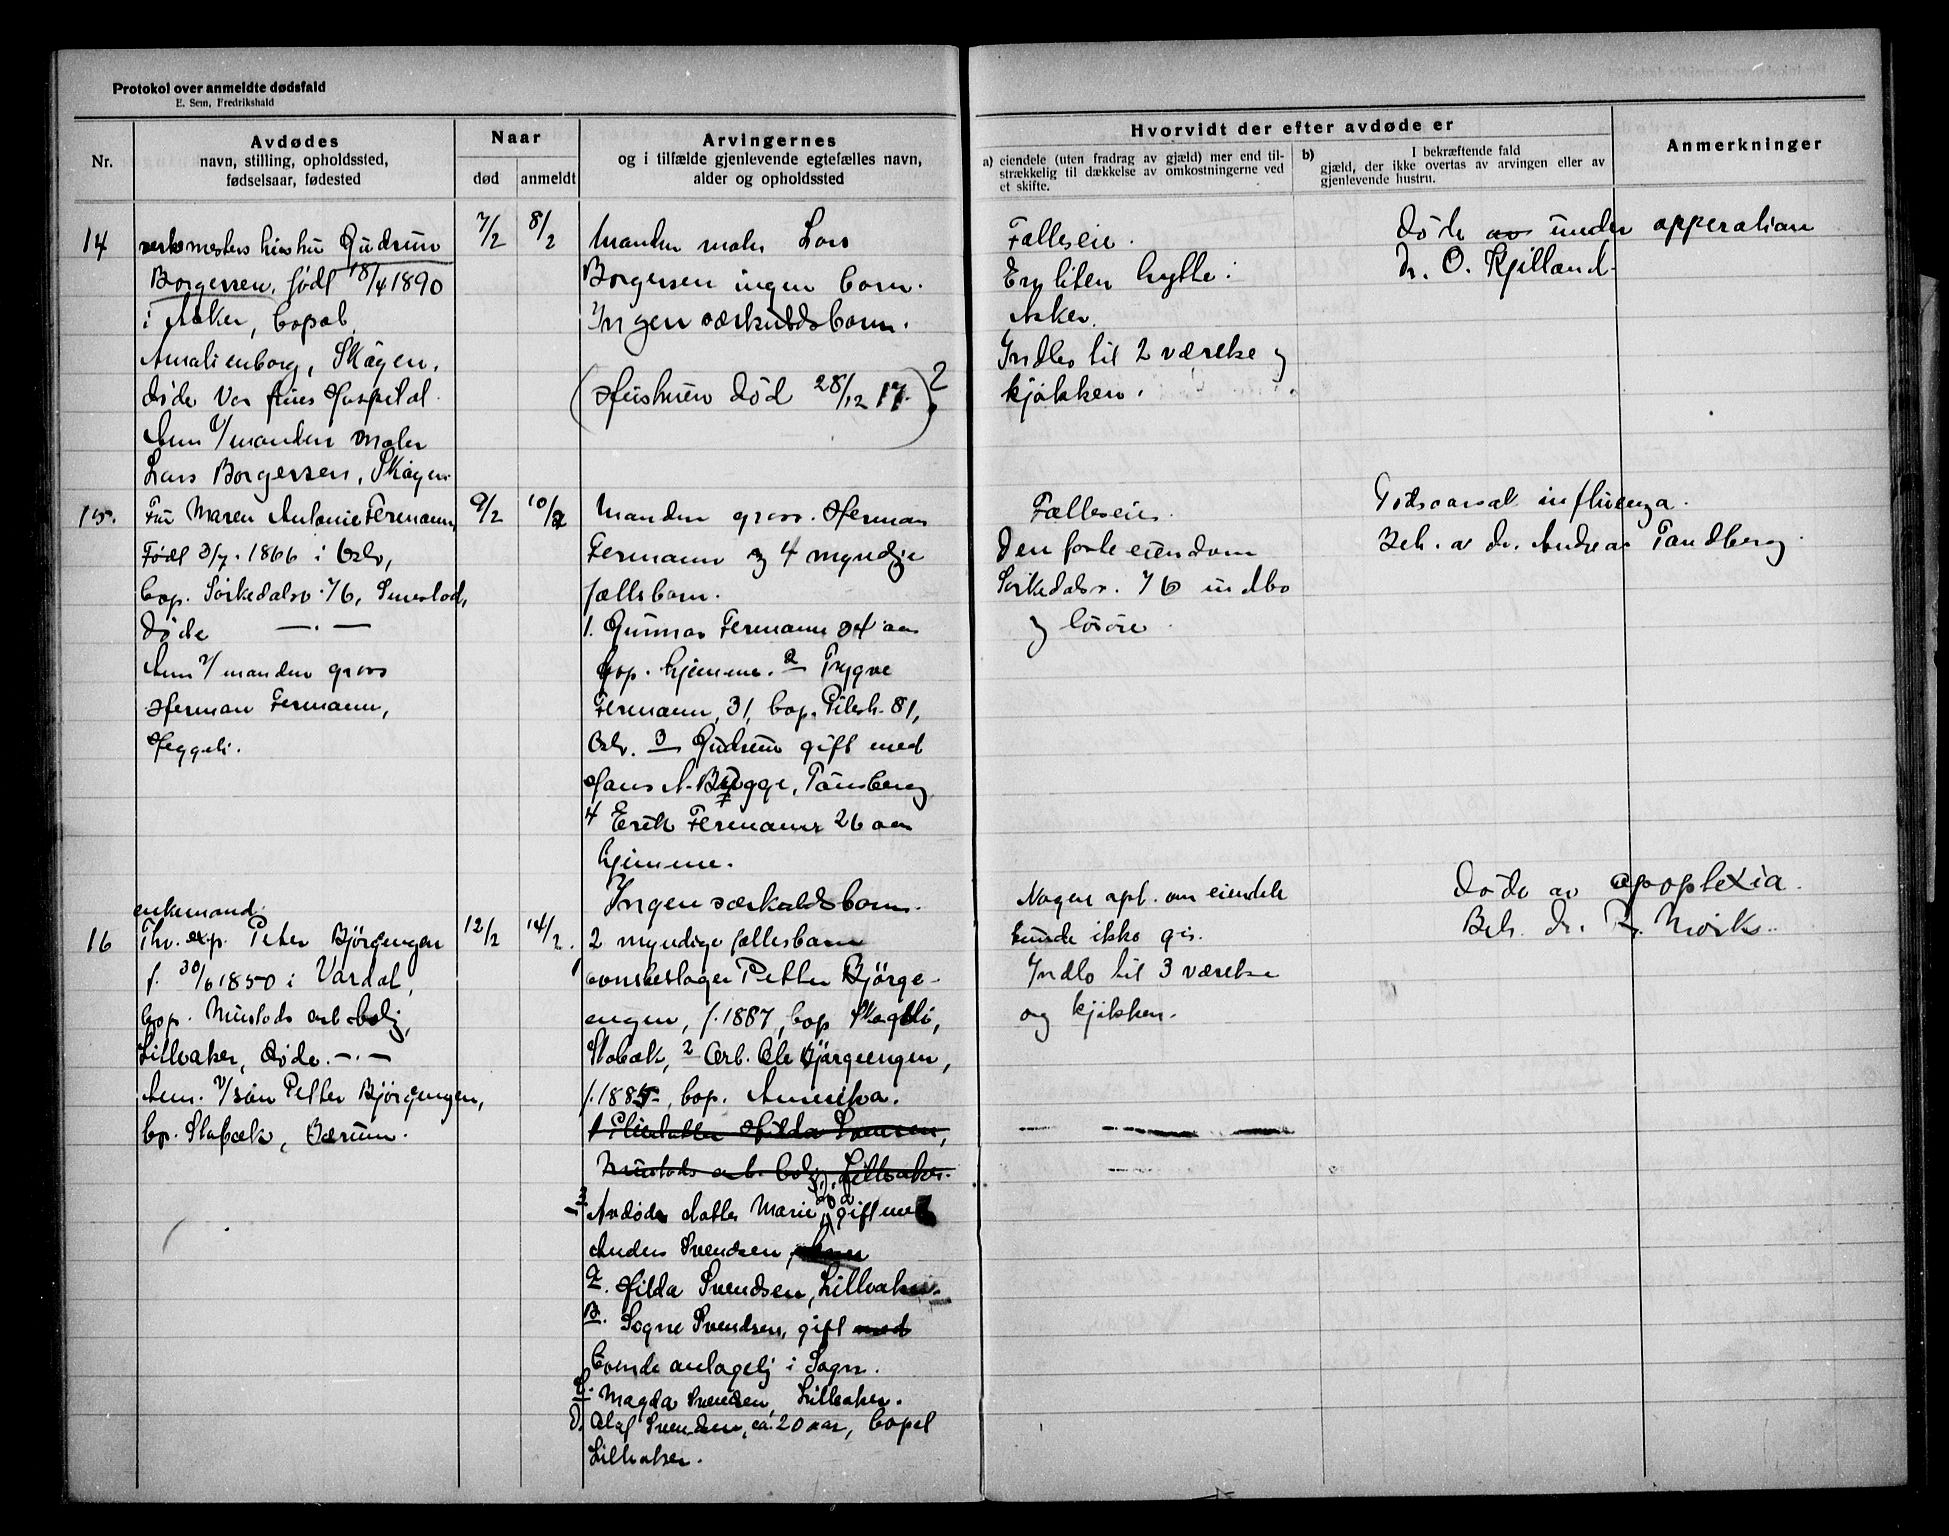 Protokol over anmeldte dødsfald
E. Sem, Fredrikshald
Nr.
Avdødes
navn, stilling, opholdssted,
fødselsaar, fødested
Naar
død
anmeldt
Arvingernes
og i tilfælde gjenlevende egtefælles navn,
alder og opholdssted
Hvorvidt der efter avdøde er
a) eiendele (uten fradrag av gjæld) mer end til-
strækkelig til dækkelse av omkostningerne ved
et skifte.
b) I bekræftende fald
gjæld, der ikke overtas av arvingen eller av
gjenlevende hustru.
Anmerkninger
14
verksmesters hustru Gudrun
Borgersen, født 18/4 1890
i Asker, bopæl
Amalienborg, Skøyen,
døde Vor frues Hospital.
Anm v/ manden maler
Lars Borgersen, Skøyen
7/2
8/2
Manden maler Lars
Borgersen ingen barn.
Ingen særkuldsbarn.
(Hustruen død 28/12 17.)?
Fælleseie.
En liten hytte i
Asker.
Indbo til 2 værelse og
kjøkken.
Døde av under opperation
dr. O. Kjilland.
15.
Fru Maren Antonie Fermann,
Født 3/7. 1866 i Oslo,
bop. Sørkedalsv. 76, Smestad,
døde —.—
Anm v/ manden gross
Herman Fermann,
Heggeli.
9/2
10/2
Manden gross. Herman
Fermann og 4 myndige
fællsbarn.
1. Gunnar Fermann 34 aar
bop. hjemme. 2 Trygve
Fermann, 31, bop. Pilestr. 81,
Oslo. 3 Gudrun gift med
Hans A. Bygge, Tønsberg
4 Erik Fermann 26 aar
hjemme.
Ingen særkuldsbarn.
Fælleseie.
Den faste eiendom
Sørkedalsv. 76 indbo
og løsøre.
Dødsaarsak influenza.
Beh. av dr. Andreas Tandberg
16
enkemand.
Thv. exp. Peter Bjørgengen
f. 30/6 1850 i Vardal,
bop. Mustads arb.bolig,
Lilleaker, døde. —.—
Anm. v/ søn Petter Bjørgengen,
bp. Stabæk, Bærum.
12/2
14/2.
2 myndige fællesbarn
1 Petter Bjørge-
engen, f. 1887, bop
Stabæk, 2 Arb. Ole Bjørgeengen,
f. 1885, bop. Amerika.
Hilda Svensen,
Mustads arb. bolig, Lilleaker.
3 Avdøde datter Marie gift med
Anders Svendsen,
A. Hilda Svendsen, Lilleaker.
B. Sogne Svendsen, gift med
bonde antagelig i Sogn.
C. Magda Svendsen, Lilleaker.
D. Olaf Svendsen, ca. 20 aar, bopel
Lilleaker.
Nogen opl. om eiendele
kunde ikke gis.
Indbo til 3 værelse
og kjøkken.
Døde av apoplexia.
Beh. dr. R. Mørk.